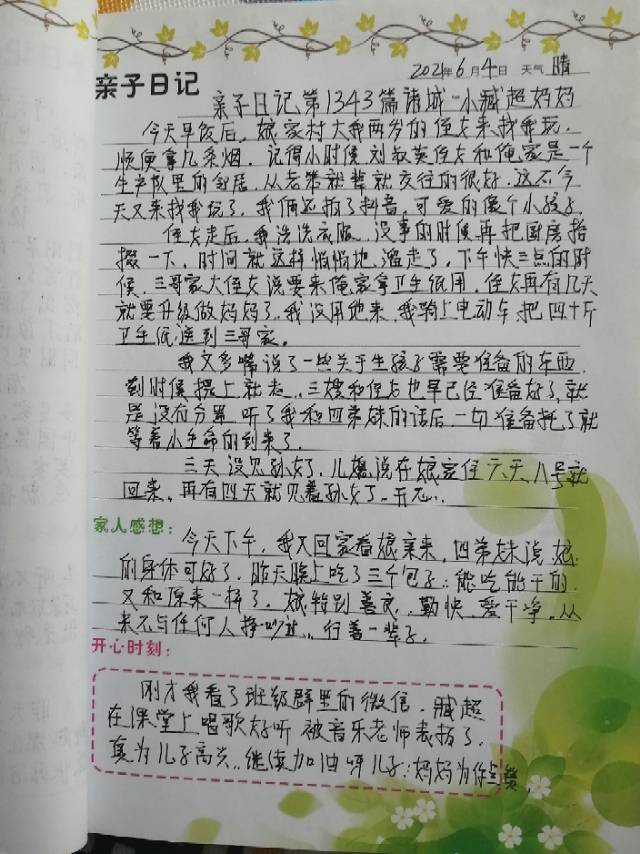 2021年6月4日 天气 晴
亲子日记
亲子日记第1343篇诸城一小臧超妈妈
今天早饭后，娘家村大我两岁的侄女来找我玩，
顺便拿几条烟。记得小时候刘敬英侄女和俺家是一个
生产队里的邻居，从老辈就辈就交往的很好。这不今
天又来找我玩了，我俩还拍了抖音，可爱的像个小孩子。
侄女走后，我洗洗衣服，没事的时候再把厨房拾
掇一下，时间就这样悄悄地溜走了，下午快三点的时
候，三哥家大侄女说要来俺家拿卫生纸用，侄女再有几天
就要升级做妈妈了，我没用她来，我骑上电动车把四十斤
卫生纸送到三哥家。
我又多嘴说了一些关于生孩子需要准备的东西，
到时候提上就走，三嫂和侄女也早已经准备好了，就
是没有分置，听了我和四弟妹的话后，一切准备托了就
等着小生命的到来了。
三天没见孙女了，儿媳说在娘家住六天，八号就
回来，再有四天就见着孙女了。开心..
家人感想：
今天下午，我又回家看娘亲来，四弟妹说娘
的身体可好了，昨天晚上吃了三个包子；能吃能干的，
又和原来一样了，娘特别善良，勤快，爱干净，从
来不与任何人挣吵过，行善一辈子。
开心时刻：
刚才我看了班级群里的微信，臧超
在课堂上唱歌好听被音乐老师表扬了，
真为儿子高兴，继续加油呀儿子；妈妈为你点赞，